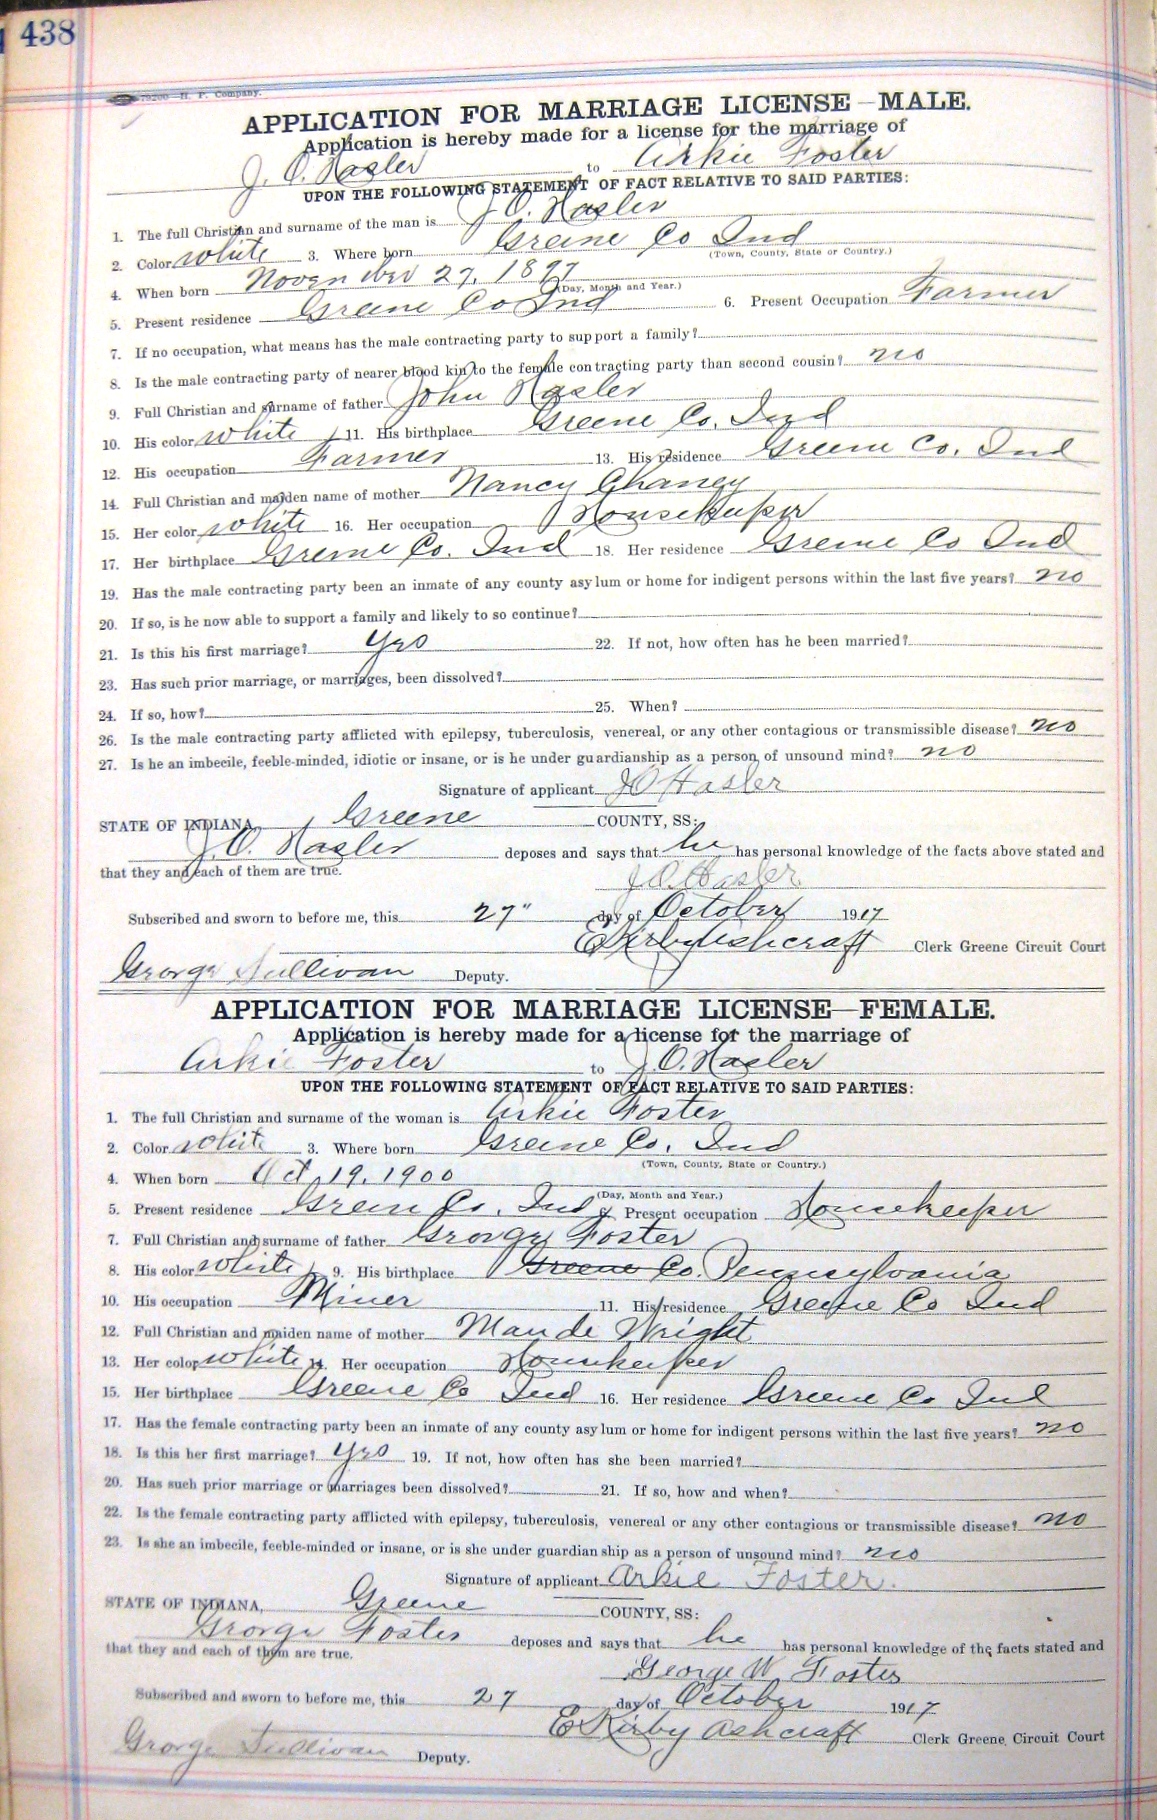 438
79200—H. P. Company.
APPLICATION FOR MARRIAGE LICENSE—MALE.
Application is hereby made for a license for the marriage of
J. O. Hasler to Arkie Foster
UPON THE FOLLOWING STATEMENT OF FACT RELATIVE TO SAID PARTIES:
1. The full Christian and surname of the man is J O. Hasler
2. Color white 3. Where born Greene Co Ind
(Town, County, State or Country.)
4. When born November 27, 1897
(Day, Month and Year.)
5. Present residence Greene Co Ind 6. Present Occupation Farmer
7. If no occupation, what means has the male contracting party to support a family?
8. Is the male contracting party of nearer blood kin to the female contracting party than second cousin? no
9. Full Christian and surname of father John Hasler
10. His color white 11. His birthplace Greene Co. Ind
12. His occupation Farmer 13. His residence Greene Co. Ind
14. Full Christian and maiden name of mother Nancy Chaney
15. Her color white 16. Her occupation Housekeeper
17. Her birthplace Greene Co. Ind 18. Her residence Greene Co Ind
19. Has the male contracting party been an inmate of any county asylum or home for indigent persons within the last five years? no
20. If so, is he now able to support a family and likely to so continue?
21. Is this his first marriage? yes 22. If not, how often has he been married?
23. Has such prior marriage, or marriages, been dissolved?
24. If so, how? 25. When?
26. Is the male contracting party afflicted with epilepsy, tuberculosis, venereal, or any other contagious or transmissible disease? no
27. Is he an imbecile, feeble-minded, idiotic or insane, or is he under guardianship as a person of unsound mind? no
Signature of applicant J O Hasler
STATE OF INDIANA, Greene COUNTY, SS:
J. O. Hasler deposes and says that he has personal knowledge of the facts above stated and
that they and each of them are true.
J O. Hasler
Subscribed and sworn to before me, this 27" day of October 1917
E Kirby Ashcraft Clerk Greene Circuit Court
George Sullivan Deputy.
APPLICATION FOR MARRIAGE LICENSE—FEMALE.
Application is hereby made for a license for the marriage of
Arkie Foster to J. O. Hasler
UPON THE FOLLOWING STATEMENT OF FACT RELATIVE TO SAID PARTIES:
1. The full Christian and surname of the woman is Arkie Foster
2. Color white 3. Where born Greene Co. Ind
(Town, County, State or Country.)
4. When born Oct. 19, 1900
(Day, Month and Year.)
5. Present residence Greene Co. Ind Present occupation Housekeeper
7. Full Christian and surname of father George Foster
8. His color white 9. His birthplace Greene Co. Pennsylvania
10. His occupation Miner 11. His residence Greene Co Ind
12. Full Christian and maiden name of mother Maude Wright
13. Her color white 14. Her occupation Housekeeper
15. Her birthplace Greene Co Ind 16. Her residence Greene Co Ind
17. Has the female contracting party been an inmate of any county asylum or home for indigent persons within the last five years? no
18. Is this her first marriage? yes 19. If not, how often has she been married?
20. Has such prior marriage or marriages been dissolved? 21. If so, how and when?
22. Is the female contracting party afflicted with epilepsy, tuberculosis, venereal or any other contagious or transmissible disease? no
23. Is she an imbecile, feeble-minded or insane, or is she under guardianship as a person of unsound mind? no
Signature of applicant Arkie Foster.
STATE OF INDIANA, Greene COUNTY, SS:
George Foster deposes and says that he has personal knowledge of the facts stated and
that they and each of them are true.
George W. Foster
Subscribed and sworn to before me, this 27 day of October 1917
E Kirby Ashcraft Clerk Greene Circuit Court
George Sullivan Deputy.